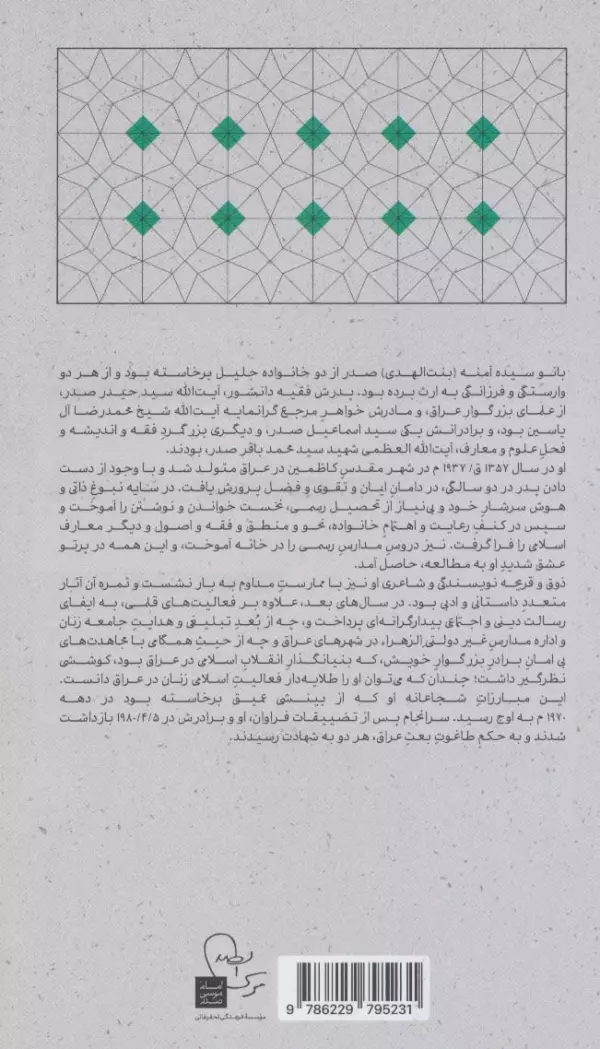 بانو سیده آمنه (بنت‌الهدی) صدر از دو خانواده جلیل برخاسته بود و از هر دو
وارستگی و فرزانگی به ارث برده بود. پدرش فقیه دانشور، آیت‌الله سید حیدر صدر،
از علمای بزرگوار عراق، و مادرش خواهر مرجع گرانمایه آیت‌الله شیخ محمدرضا آل
یاسین بود، و برادرانش یکی سید اسماعیل صدر، و دیگری بزرگردِ فقه و اندیشه و
فحلِ علوم و معارف، آیت‌الله العظمی شهید سید محمد باقر صدر، بودند.
او در سال ۱۳۵۷ ق/ ۱۹۳۷ م در شهر مقدس کاظمین در عراق متولد شد و با وجود از دست
دادن پدر در دو سالگی، در دامانِ ایمان و تقوی و فضل پرورش یافت. در سایه نبوغ ذاتی و
هوش سرشارِ خود و بی‌نیاز از تحصیل رسمی، نخست خواندن و نوشتن را آموخت و
سپس در کنفِ رعایت و اهتمامِ خانواده، نحو و منطق و فقه و اصول و دیگر معارف
اسلامی را فرا گرفت. نیز دروس مدارس رسمی را در خانه آموخت، و این همه در پرتو
عشق شدیدِ او به مطالعه، حاصل آمد.
ذوق و قریحه نویسندگی و شاعری او نیز با ممارستِ مداوم به بار نشست و ثمره آن آثار
متعددِ داستانی و ادبی بود. در سال‌های بعد، علاوه بر فعالیت‌های قلمی، به ایفای
رسالت دینی و اجتماعی بیدارگرانه‌ای پرداخت و، چه از بُعدِ تبلیغی و هدایتِ جامعه زنان
و اداره مدارسِ غیر دولتی الزهراء در شهرهای عراق و چه از حیثِ همگامی با مجاهدت‌های
بی امانِ برادر بزرگوار خویش، که بنیانگذار انقلاب اسلامی در عراق بود، کوششی
نظرگیر داشت؛ چندان که می‌توان او را طلایه‌دار فعالیتِ اسلامی زنان در عراق دانست.
این مبارزاتِ شجاعانه او که از بینشی عمیق برخاسته بود در دهه
۱۹۷۰ م به اوج رسید. سرانجام پس از تضییقات فراوان، او و برادرش در ۱۹۸۰/۴/۵ بازداشت
شدند و به حکمِ طاغوتِ بعثِ عراق، هر دو به شهادت رسیدند.
امام
موسی
صدر
مؤسسهٔ فرهنگی تحقیقاتی
9 786229 795231